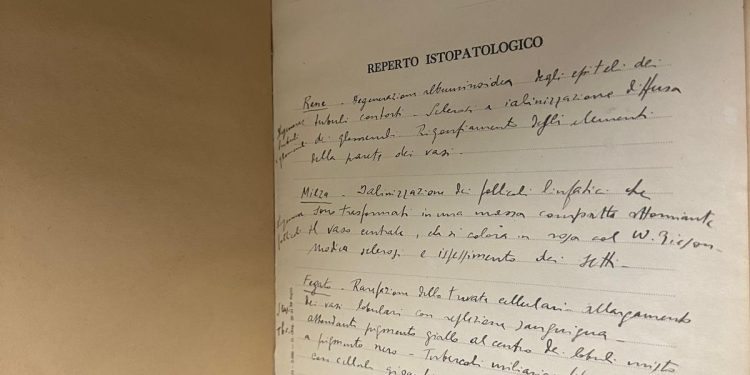 REPERTO ISTOPATOLOGICO
Rene - Degenerazione albuminoidea degli epiteli dei
tubuli contorti - Sclerosi e ialinizzazione diffusa
dei glomeruli - Rigonfiamento degli elementi
della parete dei vasi -
Milza - Ialinizzazione dei follicoli linfatici che
sono trasformati in una massa compatta attorniante
il vaso centrale, che si colora in rosa col W. Gieson -
Modica sclerosi e ispessimento dei setti -
Fegato - Rarefazione delle travate cellulari - allargamento
dei vasi lobulari con replezione sanguigna -
abbondante pigmento giallo al centro dei lobuli misto
a pigmento nero - Tubercoli miliari
con cellule